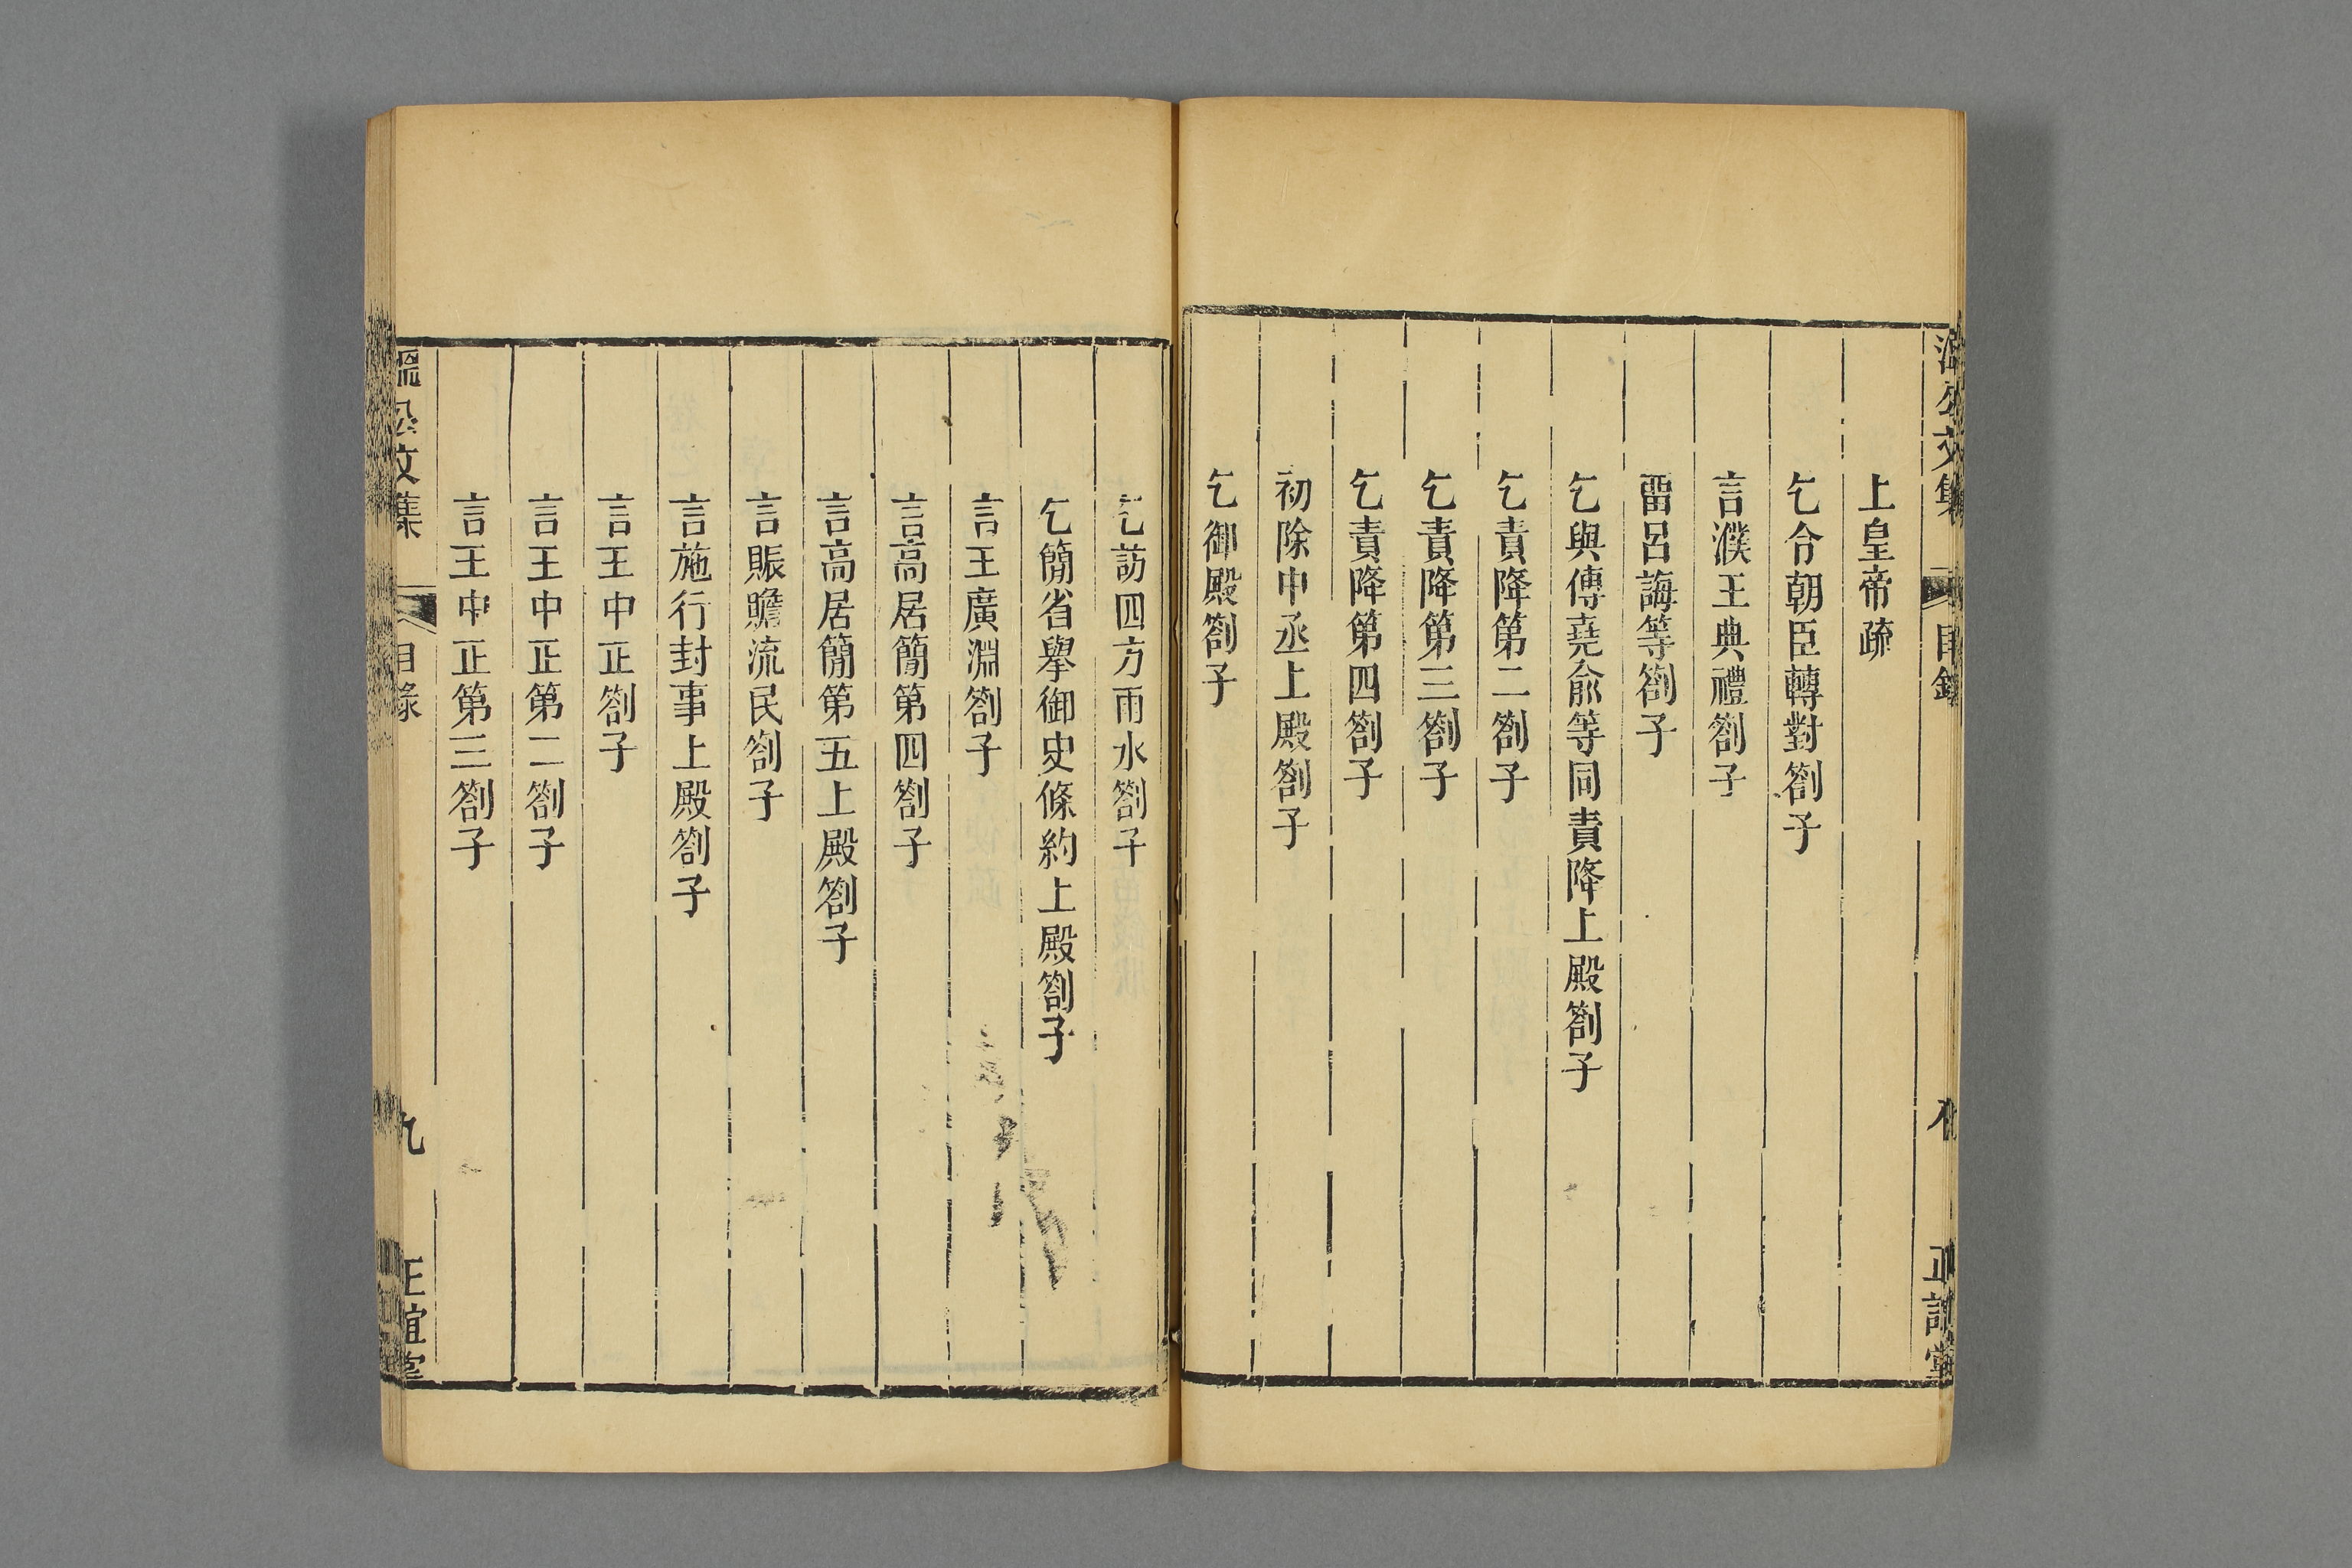 溫公文集 目錄 八 正誼堂
上皇帝疏
乞令朝臣轉對劄子
言濮王典禮劄子
畱呂誨等劄子
乞與傅堯俞等同責降上殿劄子
乞責降第二劄子
乞責降第三劄子
乞責降第四劄子
初除中丞上殿劄子
乞御殿劄子
乞訪四方雨水劄子
乞簡省舉御史條約上殿劄子
言王廣淵劄子
言高居簡第四劄子
言高居簡第五上殿劄子
言賑贍流民劄子
言施行封事上殿劄子
言王中正劄子
言王中正第二劄子
言王中正第三劄子
溫公文集 目錄 九 正誼堂